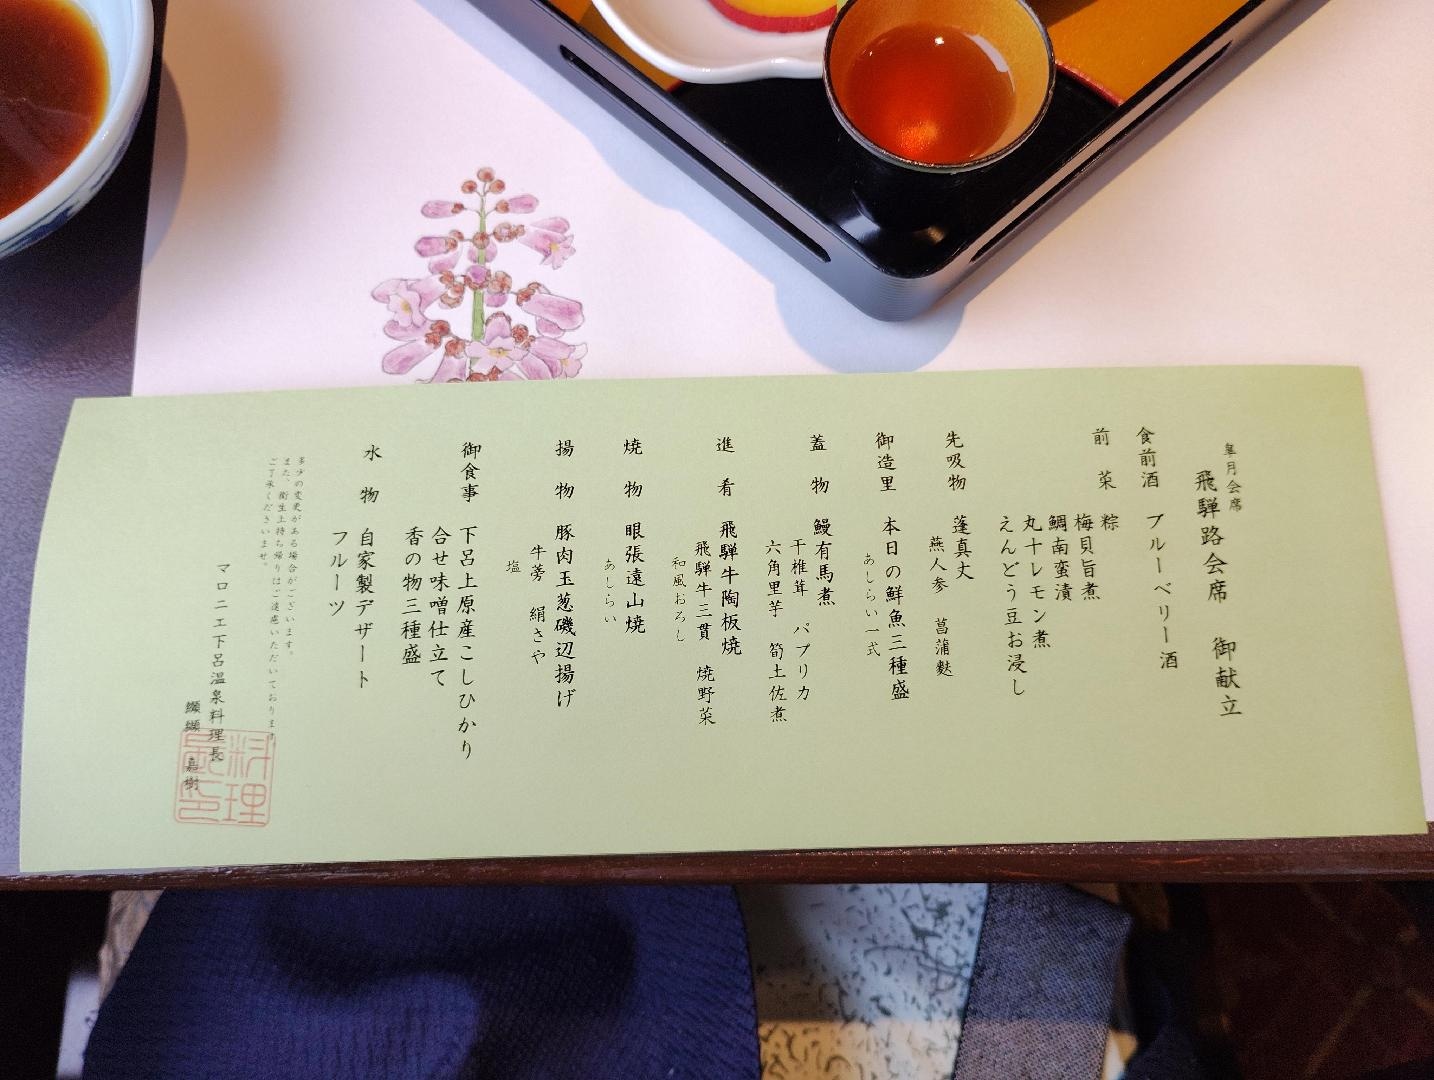 皐月会席
飛騨路会席　御献立
食前酒　ブルーベリー酒
前　菜　粽
梅貝旨煮
鯛南蛮漬
丸十レモン煮
えんどう豆お浸し
先吸物　蓬真丈
燕人参　菖蒲麩
御造里　本日の鮮魚三種盛
あしらい一式
蓋　物　鰻有馬煮
干椎茸　パプリカ
六角里芋　筍土佐煮
進　肴　飛騨牛陶板焼
飛騨牛三貫　焼野菜
和風おろし
焼　物　眼張遠山焼
あしらい
揚　物　豚肉玉葱磯辺揚げ
牛蒡　絹さや
塩
御食事　下呂上原産こしひかり
合せ味噌仕立て
香の物三種盛
水　物　自家製デザート
フルーツ
多少の変更がある場合がございます。
また、衛生上持ち帰りはご遠慮いただいております。
ご了承くださいませ。
マロニエ下呂温泉料理長
纐纈　嘉樹
料理